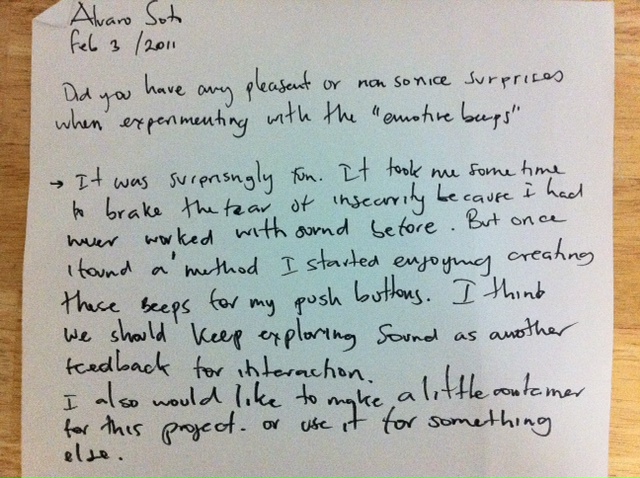 Alvaro Soto
Feb 3 / 2011
Did you have any pleasent or non so nice surprises
when experimenting with the "emotive beeps"
→ It was surprisngly fun. It took me some time
to brake the fear of insecurity because I had
never worked with sound before. But once
I found a method I started enjoying creating
these beeps for my push buttons. I think
we should keep exploring sound as another
feedback for interaction.
I also would like to make a little container
for this project. or use it for something
else.